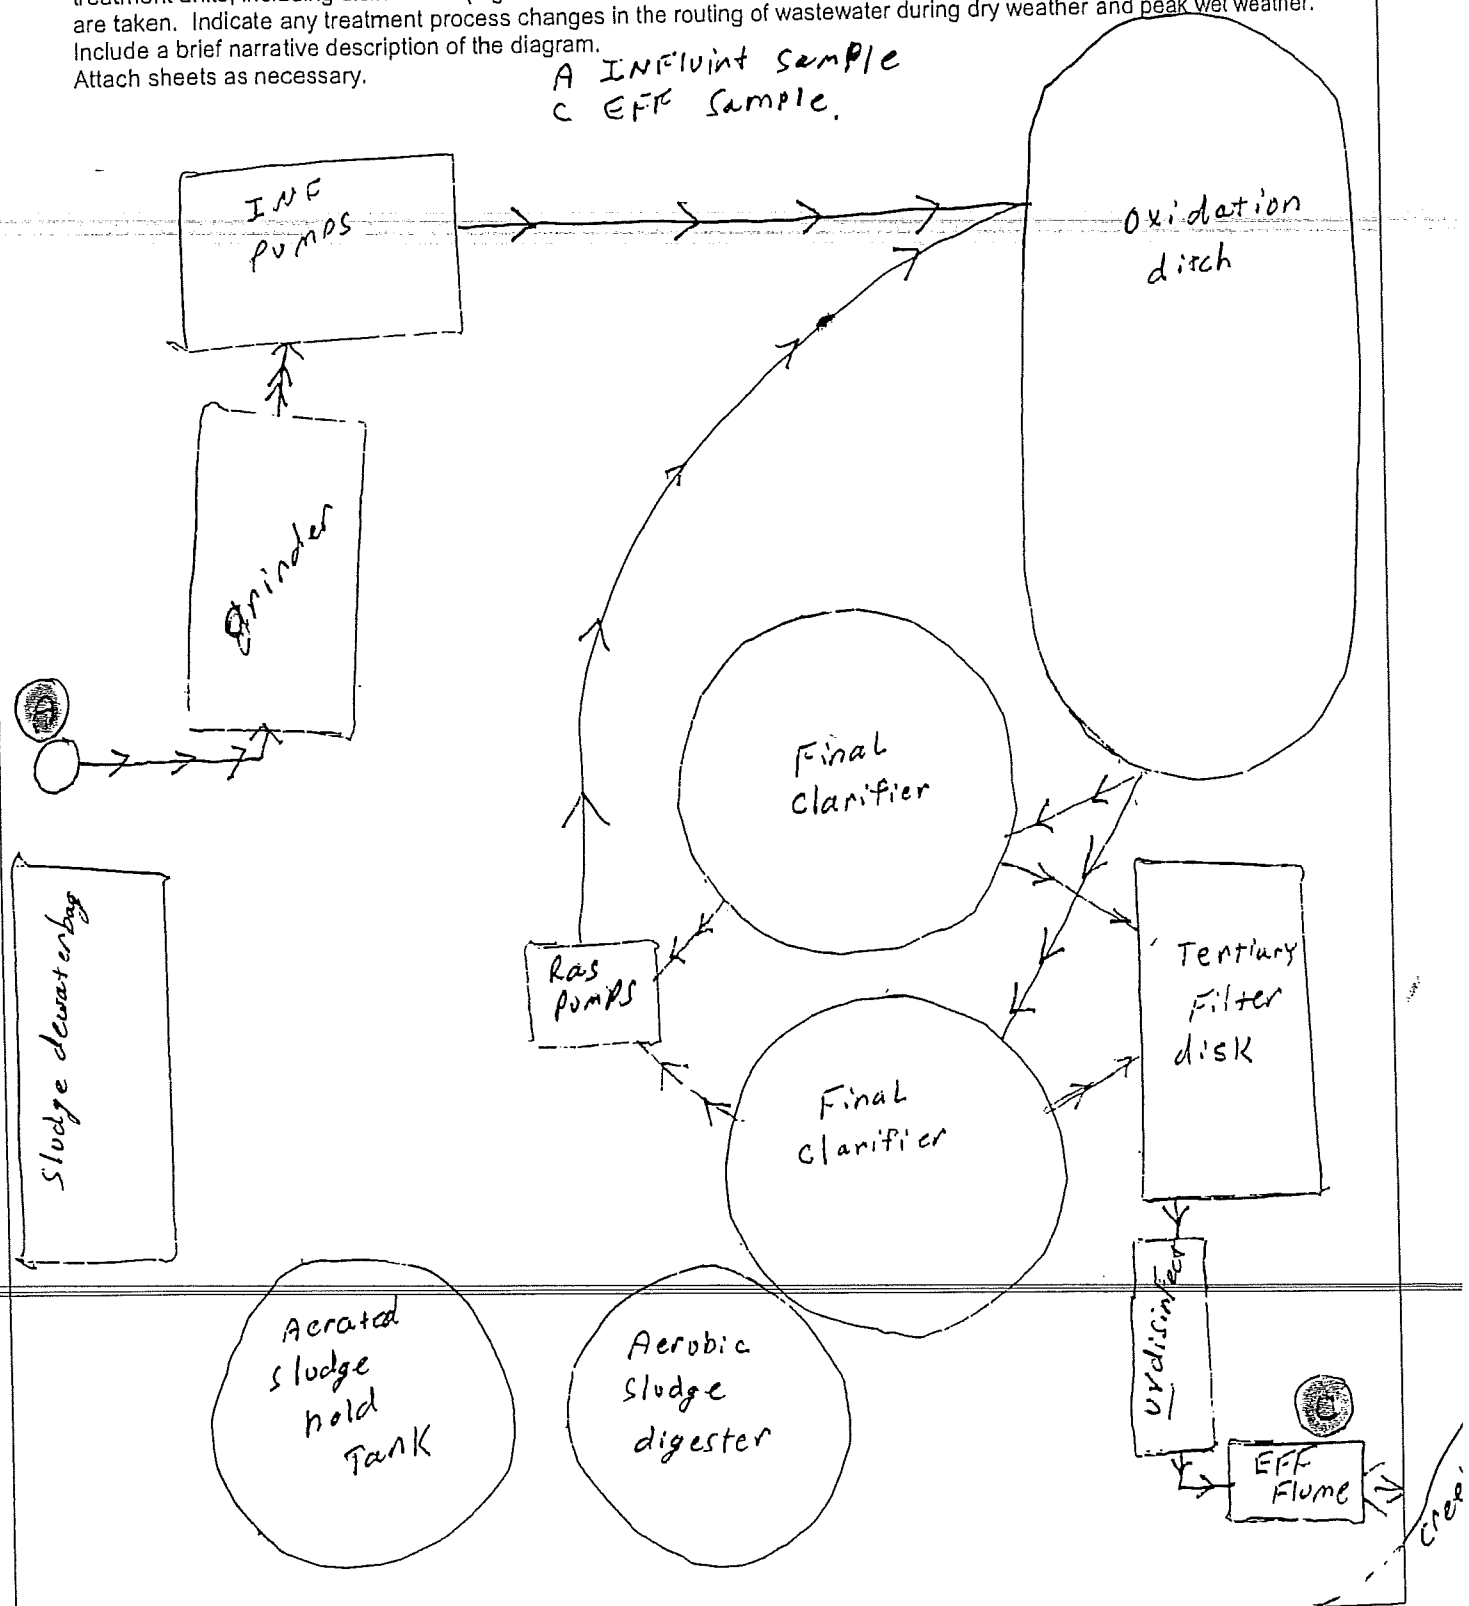 are taken. Indicate any treatment process changes in the routing of wastewater during dry weather and peak wet weather.
Include a brief narrative description of the diagram.
Attach sheets as necessary.
A INFluint Sample
C EFF Sample.
INF
PUMPS
Oxidation
ditch
Grinder
Final
Clarifier
Sludge dewaterbag
Ras
PUMPS
Tertiary
Filter
disk
Final
Clarifier
UV disinfect
Aerated
sludge
hold
Tank
Aerobic
Sludge
digester
C
EFF
Flume